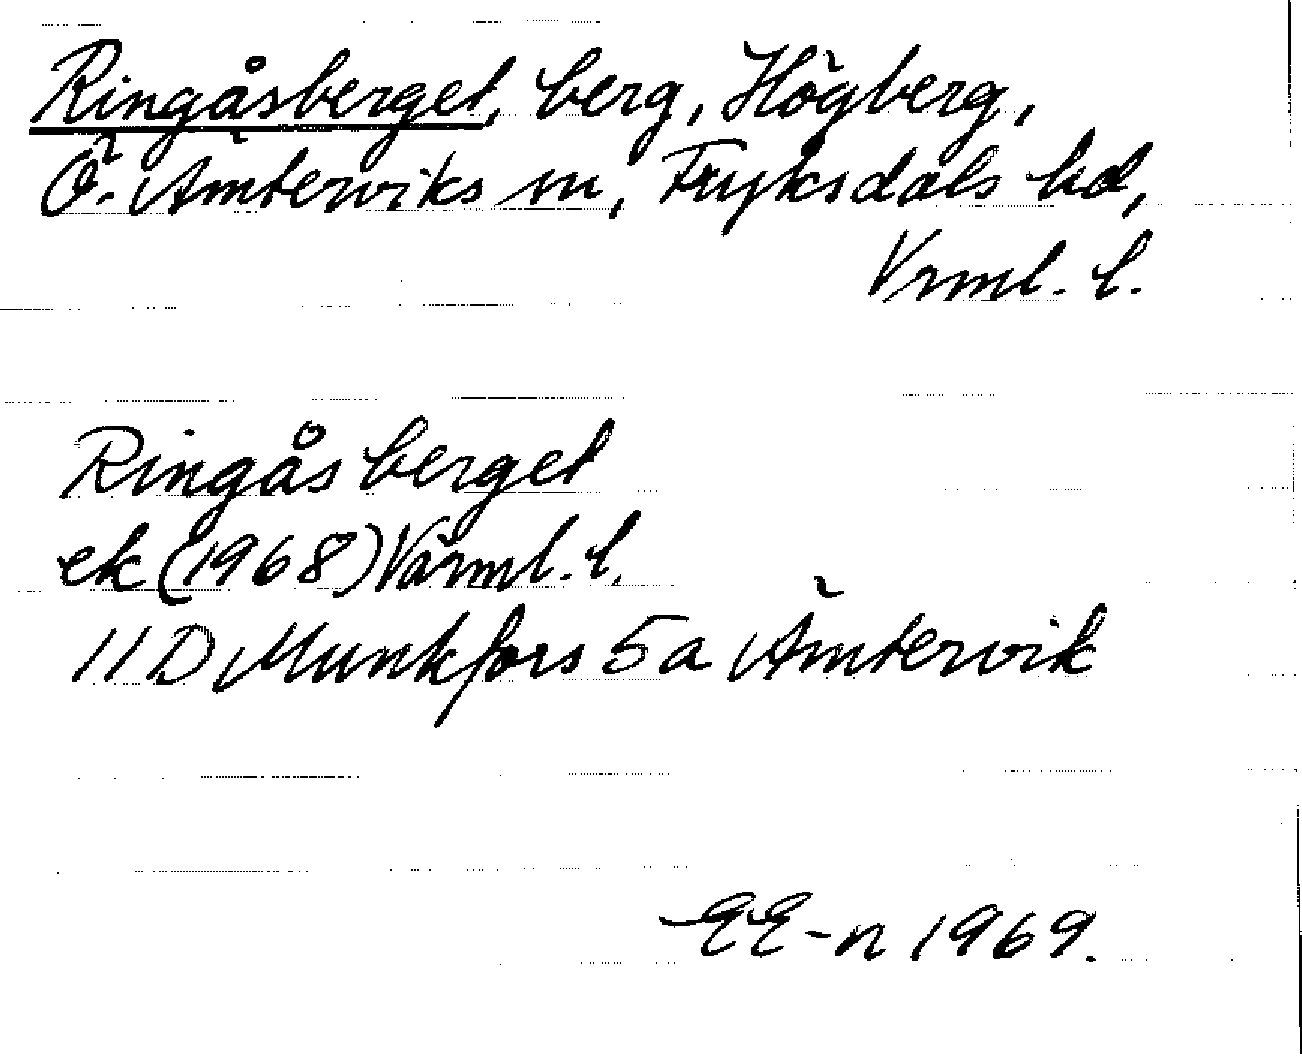 Ringåsberget, berg, Högberg,
Ö. Ämterviks sn, Fryksdals hd,
Vrml. l.
Ringåsberget
ek (1968) Värml. l.
11 D Munkfors 5a Ämtervik
EE-n 1969.